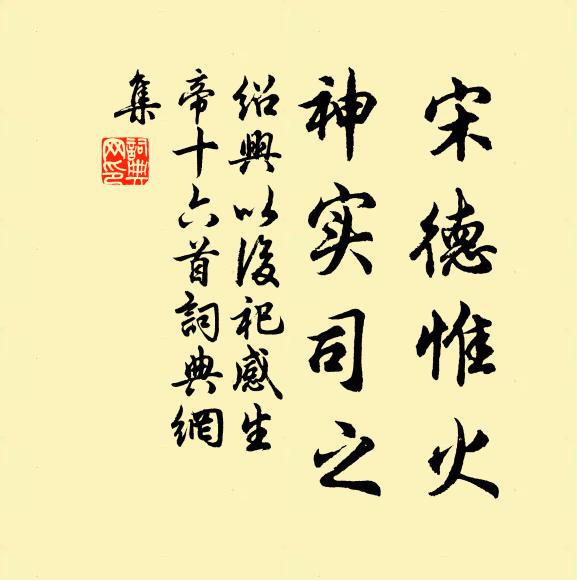 宋德惟火
神实司之
绍興以後祀感生
帝十六首詞典網
集
詞典網印